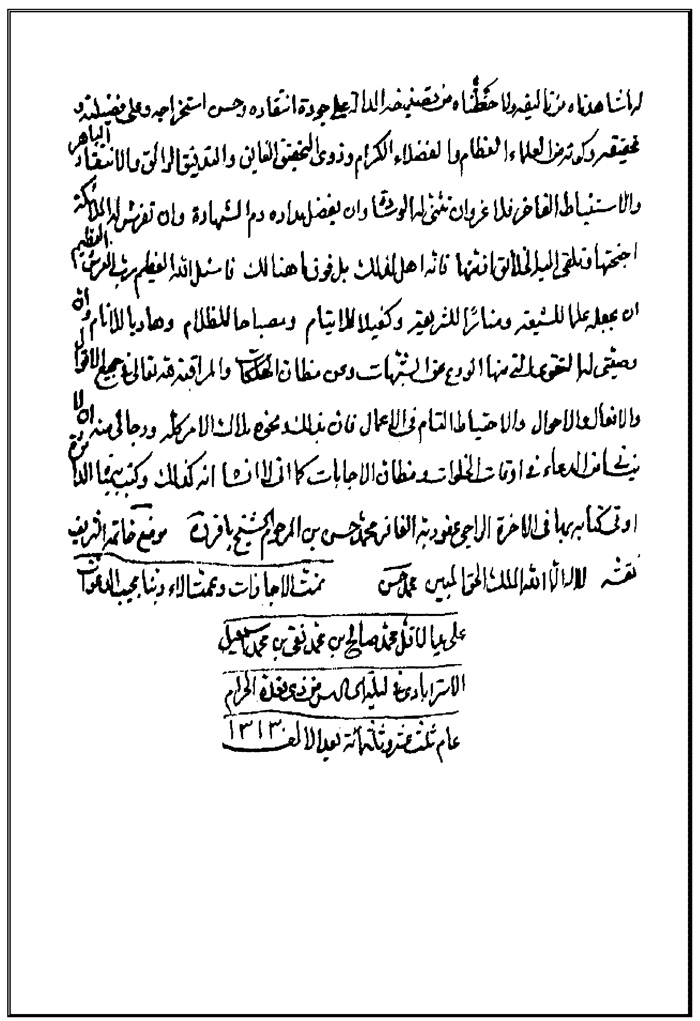 لما شاهدناه من تأليفه ولاحظناه من تصنيفه الدال على جودة انتقاده وحسن استخراجه وعلى فضيلته و
تحقيقه وكونه من العلماء العظام والفضلاء الكرام وذوى التحقيق الفائق والتدقيق الرائق والانتقاد الباهر
والاستنباط الفاخر فلا غرو ان تثنى له الوسادة وان يفضل مداده دم الشهادة وان تفرش له الملائكة
اجنحتها وتلقى اليه الخلائق ازمتها فانه اهل لذلك بل فوق ما هنالك فاسئل الله العظيم رب العرش العظيم
ان يجعله علما للشيعة ومنارًا للشريعة وكفيلا للايتام ومصباحا للظلام وهاديا للانام وان
التقوى التى منها الورع عن الشبهات وعن مظان الهلكات والمراقبة لله تعالى فى جميع الاقوال
والافعال والاحوال والاحتياط التام فى الاعمال فان بذلك ونحوه ملاك الامر كله ورجائى منه ان لا
ينسانى من الدعاء فى اوقات الخلوات ومظان الاجابات كما انى لا انساه كذلك وكتب بيمناه
اوتى كتابه بها فى الاخرة الراجى عفو ربه الغافر محمد حسن بن المرحوم الشيخ باقر موضع خاتمه الشريف
نقشه لا اله الا الله الملك الحق المبين محمد حسن تمت الاجازات وعمت الاء ربنا مجيب الدعوات
على يد الاقل محمد صالح بن محمد تقى بن محمد اسمعيل
الاسترابادى فى ليلة من ذى قعدة الحرام
عام ثلث عشر وثلثمائة بعد الالف ١٣١٣